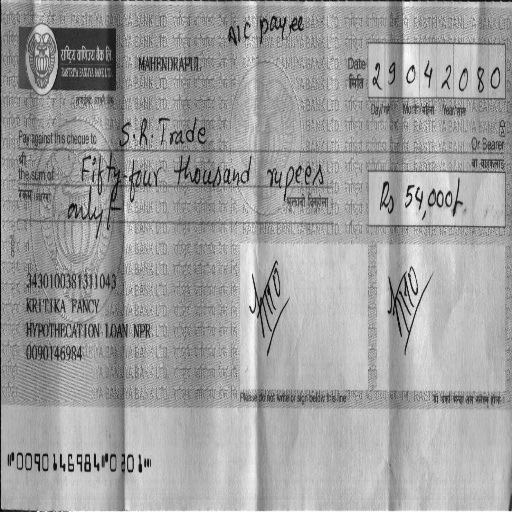 A/C payee
राष्ट्रिय वाणिज्य बैंक लि.
RASTRIYA BANIJYA BANK LTD.
MAHENDRAPUL
Date
मिति
29 04 2080
Pay against this cheque to S.R. Trade
Or Bearer
वा वाहकलाई
श्री
the sum of Fifty-four thousand rupees
रकम
only/-
Rs 54,000/-
3430100381311043
KRITIKA PANCY
HYPOTHECATION LOAN NPR
0090146984
Please do not write or sign below this line
"0090146984"0201"